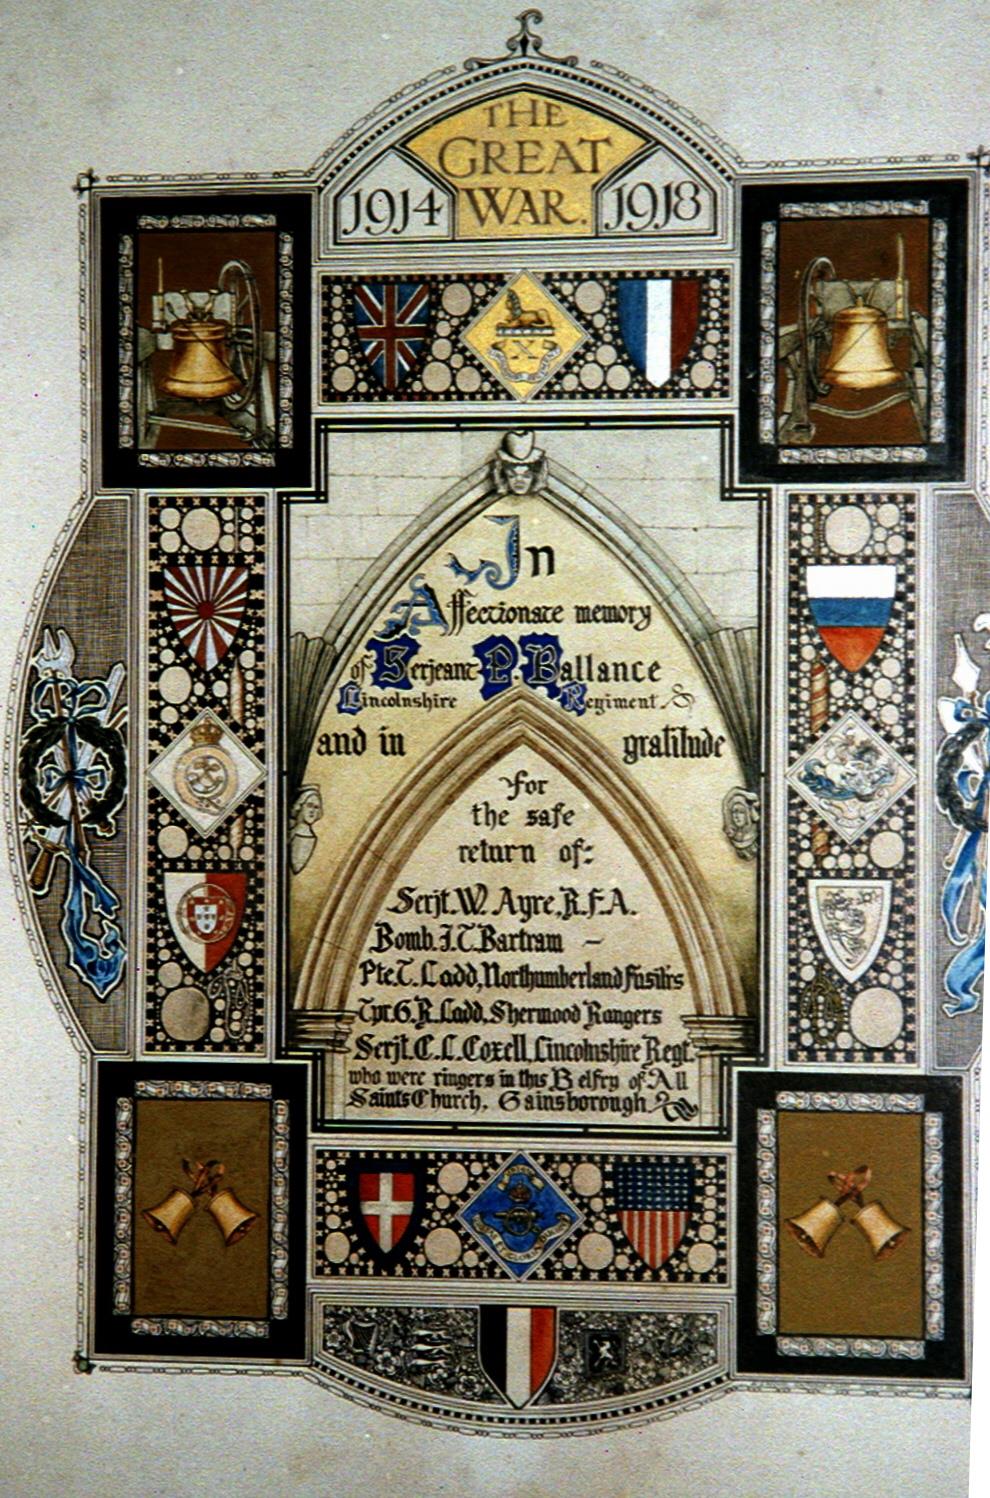 THE
GREAT
1914 WAR. 1918
X
In
Affectionate memory
of Serjeant P. Ballance
Lincolnshire Regiment &
and in gratitude
for
the safe
return of:
Serjt. W. Ayre, R.F.A.
Bomb. J. T. Bartram —
Pte T. Ladd, Northumberland Fusilrs
Tpr. G. R. Ladd, Sherwood Rangers
Serjt. C. L. Coxell, Lincolnshire Regt.
who were ringers in this Belfry of All
Saints Church, Gainsborough